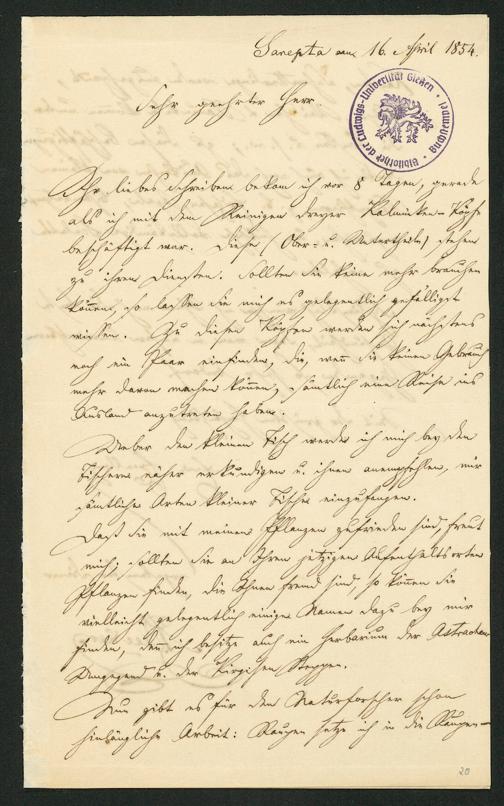 Sarepta am 16. April 1854.
Sehr geehrter Herr
Bibliothek der Ludwigs-Universität Gießen • Buchnamel •
Ihr liebes Schreiben bekam ich vor 8 Tagen, gerade
als ich mit dem Reinigen dreyer Kalmüken-Köpfe
beschäftigt war. Diese (Ober- u. Untertheile) stehen
zu ihren Diensten. Sollten Sie keine mehr brauchen
können, so lassen Sie mich es gelegentlich gefälligst
wissen. Zu diesen Köpfen werden sich nächstens
noch ein Paar einfinden, die, wenn Sie keinen Gebrauch
mehr davon machen können, sämtlich eine Reise ins
Ausland anzutreten haben.
Ueber den kleinen Fisch werde ich mich bey den
Fischern näher erkundigen u. ihnen anempfehlen, mir
sämtliche Arten kleiner Fische einzufangen.
Daß Sie mit meinen Pflanzen zufrieden sind, freut
mich; sollten Sie an Ihren jetzigen Aufenthaltsorten
Pflanzen finden, die Ihnen fremd sind, so können Sie
vielleicht gelegentlich einige Namen dazu bey mir
finden, denn ich besitze auch ein Herbarium der Astrachan
Umgegend u. der Kirgisen Steppen.
Nun gibt es für den Naturforscher schon
hinlängliche Arbeit: Raupen setze ich in die Raupen-
20